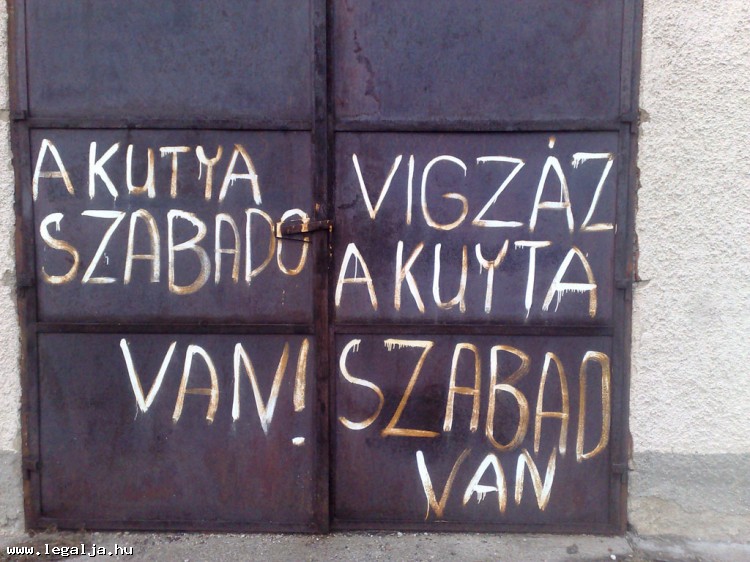 A KUTYA
SZABADO
VAN!
VIGZÁZ
A KUYTA
SZABAD
VAN
www.legalja.hu